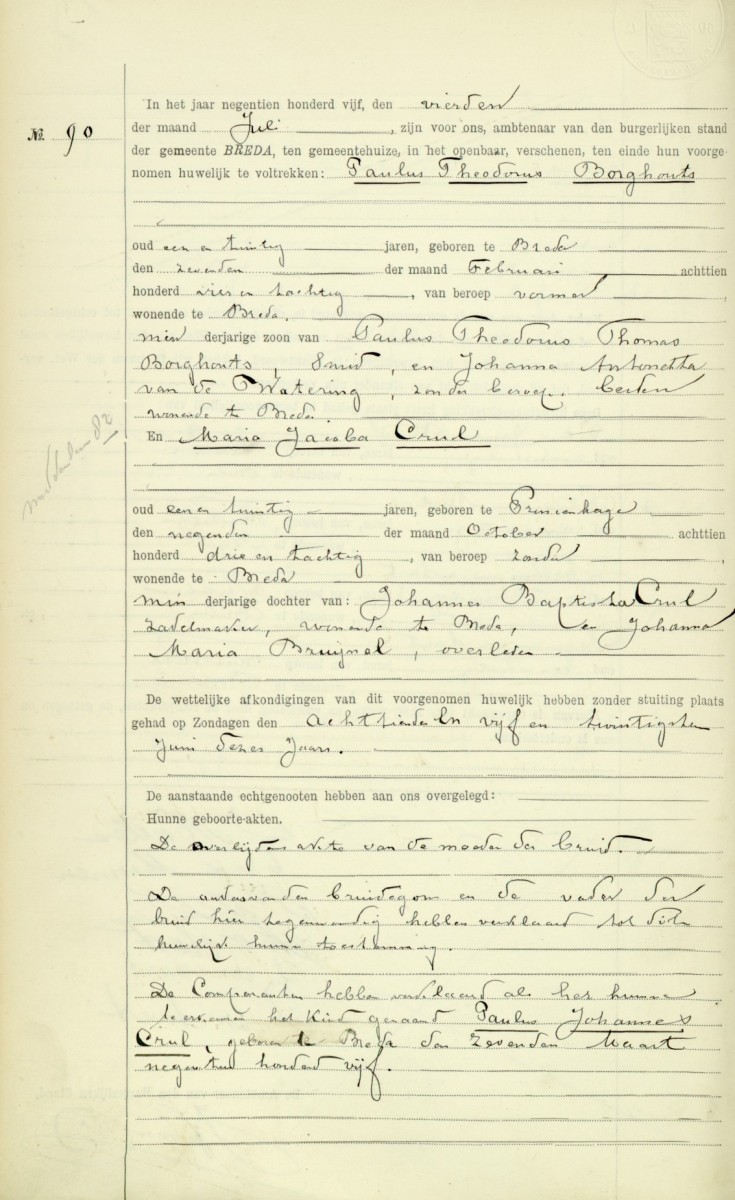 In het jaar negentien honderd vijf, den vierden
№. 90
der maand Juli, zijn voor ons, ambtenaar van den burgerlijken stand
der gemeente BREDA, ten gemeentehuize, in het openbaar, verschenen, ten einde hun voorge-
nomen huwelijk te voltrekken: Paulus Theodorus Borghouts
oud een en twintig jaren, geboren te Breda
den zevenden der maand Februari achttien
honderd vier en tachtig, van beroep vormer,
wonende te Breda,
minderjarige zoon van Paulus Theodorus Thomas
Borghouts, Smid, en Johanna Antonetta
van de Watering, zonder beroep, beiden
wonende te Breda
En Maria Jacoba Crul
oud een en twintig jaren, geboren te Princenhage
den negenden der maand October achttien
honderd drie en tachtig, van beroep zonder,
wonende te Breda
minderjarige dochter van: Johannes Baptista Crul
zadelmaker, wonende te Breda, en Johanna
Maria Bruijnel, overleden
De wettelijke afkondigingen van dit voorgenomen huwelijk hebben zonder stuiting plaats
gehad op Zondagen den achttienden en vijf en twintigsten
Juni dezes Jaars.
De aanstaande echtgenooten hebben aan ons overgelegd:
Hunne geboorte-akten.
De overlijdens akte van de moeder der bruid.
De ouders van den bruidegom en de vader der
bruid hier tegenwoordig hebben verklaard tot dit
huwelijk hunne toestemming.
De Comparanten hebben verklaard als het hunne
te erkennen het Kind genaamd Paulus Johannes
Crul, geboren te Breda den zevenden Maart
negentien honderd vijf.